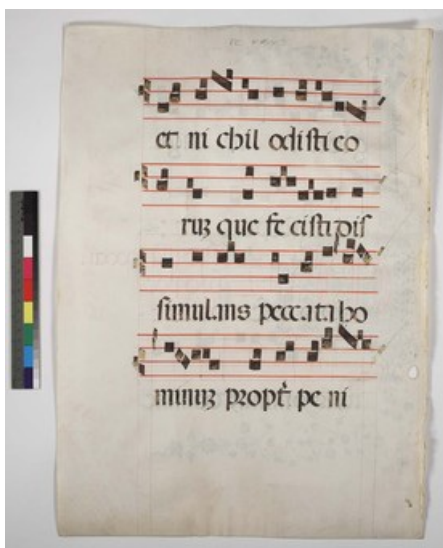 et ni chil odisti co
ruꝫ que fe cisti dis
simulans peccata ho
minuꝫ propt̉ pe ni